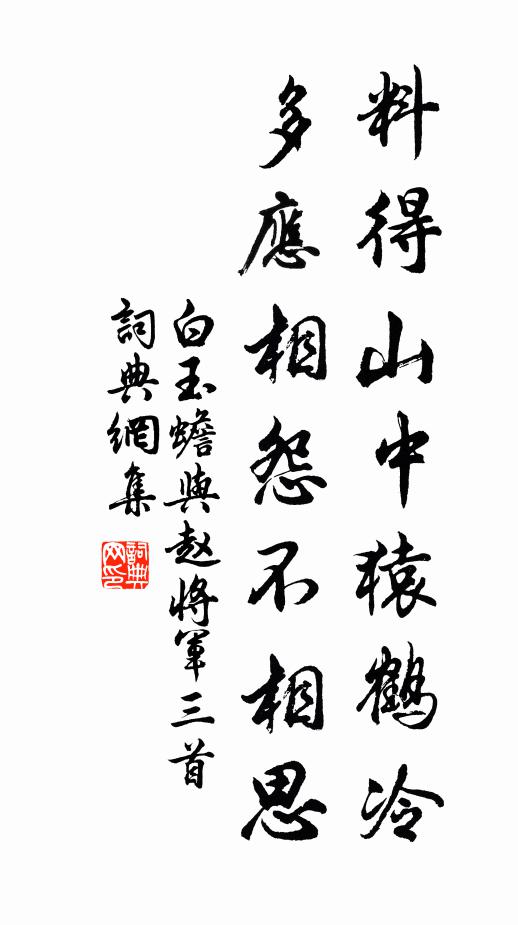 料得山中猿鶴冷
多應相怨不相思
白玉蟾與赵將軍三首
詞典網集
詞典
网印